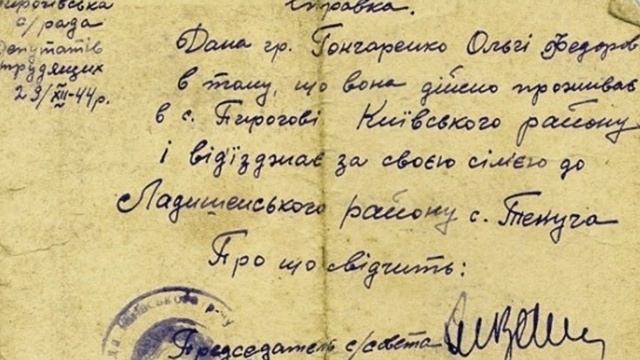 Пирогівська
с/рада
Депутатів
трудящих
29/XII-44р.
Справка.
Дана гр. Гончаренко Ользі Федоров
в тому, що вона дійсно проживає
в с. Пирогові Київського району
і від'їзджає за своєю сім'єю до
Ладишенського району с. Текуча
Про що свідчить:
Київського р-ну
Председатель с/совета